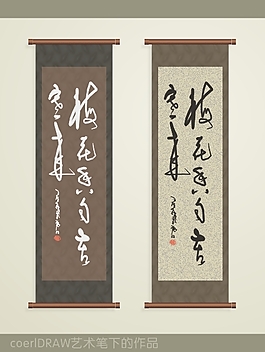 梅花香自苦
寒来
梅花香自苦
寒来
coerlDRAW艺术笔下的作品